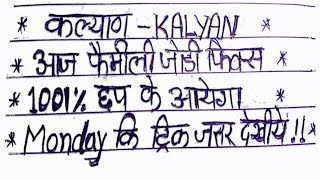 * कल्याण - KALYAN *
* आज फैमीली जोडी फिक्स *
* 1001% छप के आयेगा *
* Monday कि ट्रिक जरुर देखीये !! *